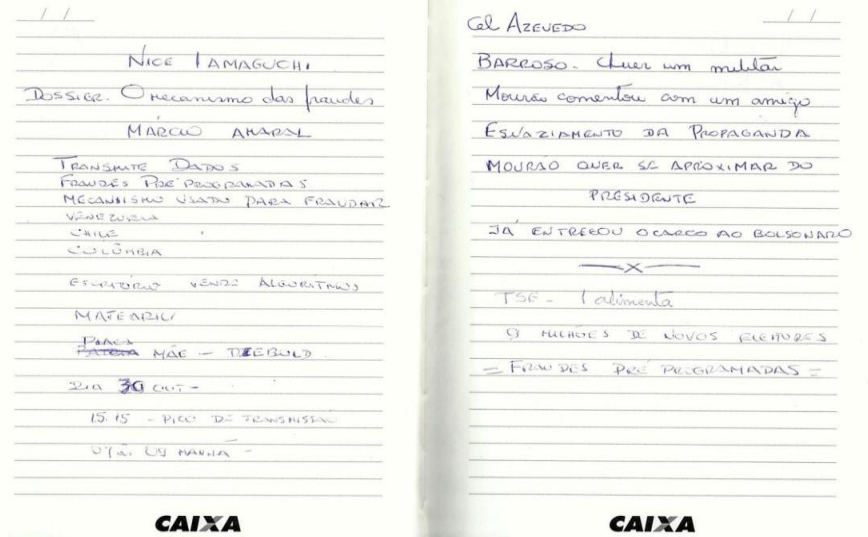 / /
NICE IAMAGUCHI
DOSSIER. O mecanismo das fraudes
MÁRCIO AMARAL
TRANSMITE DADOS
FRAUDES PRÉ PROGRAMADAS
MECANISMO USADO PARA FRAUDAR
VENEZUELA
CHILE
COLÔMBIA
ESCRITÓRIO VENDE ALGORITMOS
PLACA
MÃE - DIEBOLD
DIA 30 OUT -
15.15 - PICO DE TRANSMISSÃO
MANHÃ -
CAIXA
/ /
Cel AZEVEDO
BARROSO. Quer um militar
Mourão comentou com um amigo
ESVAZIAMENTO DA PROPAGANDA
MOURÃO QUER SE APROXIMAR DO
PRESIDENTE
JÁ ENTREGOU O CARGO AO BOLSONARO
X
TSE - alimenta
9 MILHÕES DE NOVOS ELEITORES
= FRAUDES PRÉ PROGRAMADAS =
CAIXA